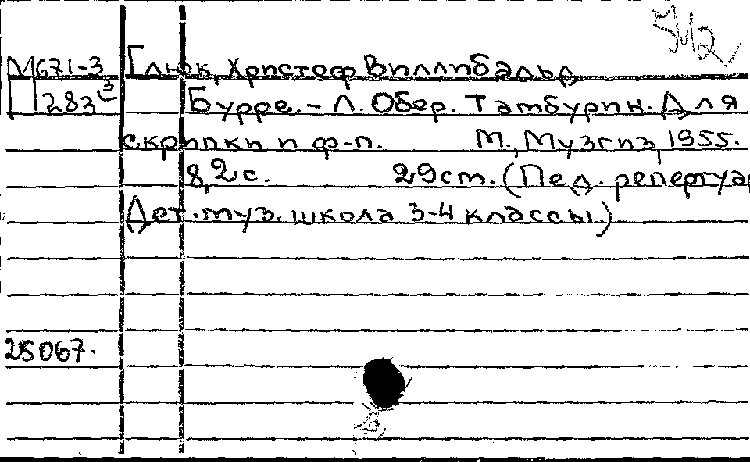 М671-3 Глюк, Христоф Виллибальд
П 283 Бурре. - Л. Обер. Тамбурин. Для
скрипки и ф-п. М., Музгиз, 1955.
8, 2 с. 29 см. (Пед. репертуар
Дет. муз. школа 3-4 классы.)
25067.